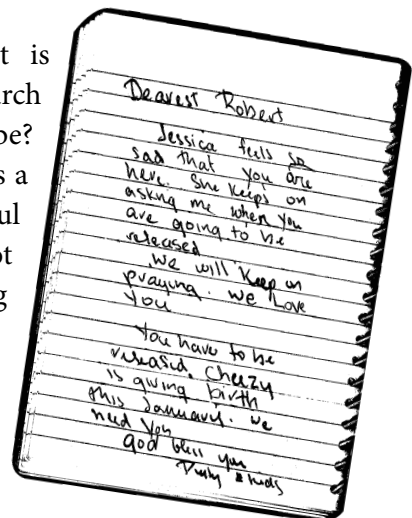 t is
rch
be?
s a
ul
ot
g
Dearest Robert
Jessica feels so
sad that you are
here. She keeps on
asking me when you
are going to be
released
we will keep on
praying. We Love
you
You have to be
released. Cheezy
is giving birth
this January. We
need you
God bless you
& kids